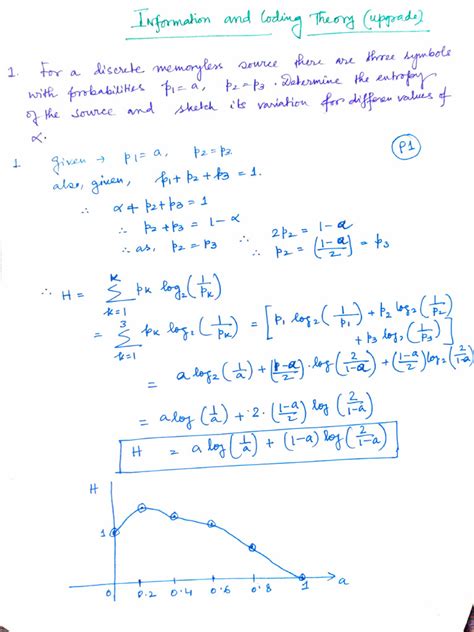 Information and Coding Theory (upgrade)
1. For a discrete memoryless source there are three symbols
with probabilities p₁=α, p₂=p₃. Determine the entropy
of the source and sketch its variation for different values of
α.
P1
1. Given → p₁=a, p₂=p₂
also, given, p₁+p₂+p₃=1.
∴ α+p₂+p₃=1
∴ p₂+p₃=1-α
∴ as, p₂=p₃ ∴ 2p₂=1-a
∴ p₂=(1-a/2)=p₃
∴ H = K∑k=1 pk log₂(1/pk)
= 3∑k=1 pk log₂(1/pk) = [p₁ log₂(1/p₁)+p₂ log₂(1/p₂)
+p₃ log₂(1/p₃)]
= a log₂(1/a)+(1-a/2)·log(2/1-a)+(1-a/2)log₂(2/1-a)
= a log(1/a)+2·(1-a/2)log(2/1-a)
H = a log(1/a)+(1-a)log(2/1-a)
H
1
0 0.2 0.4 0.6 0.8 1 a